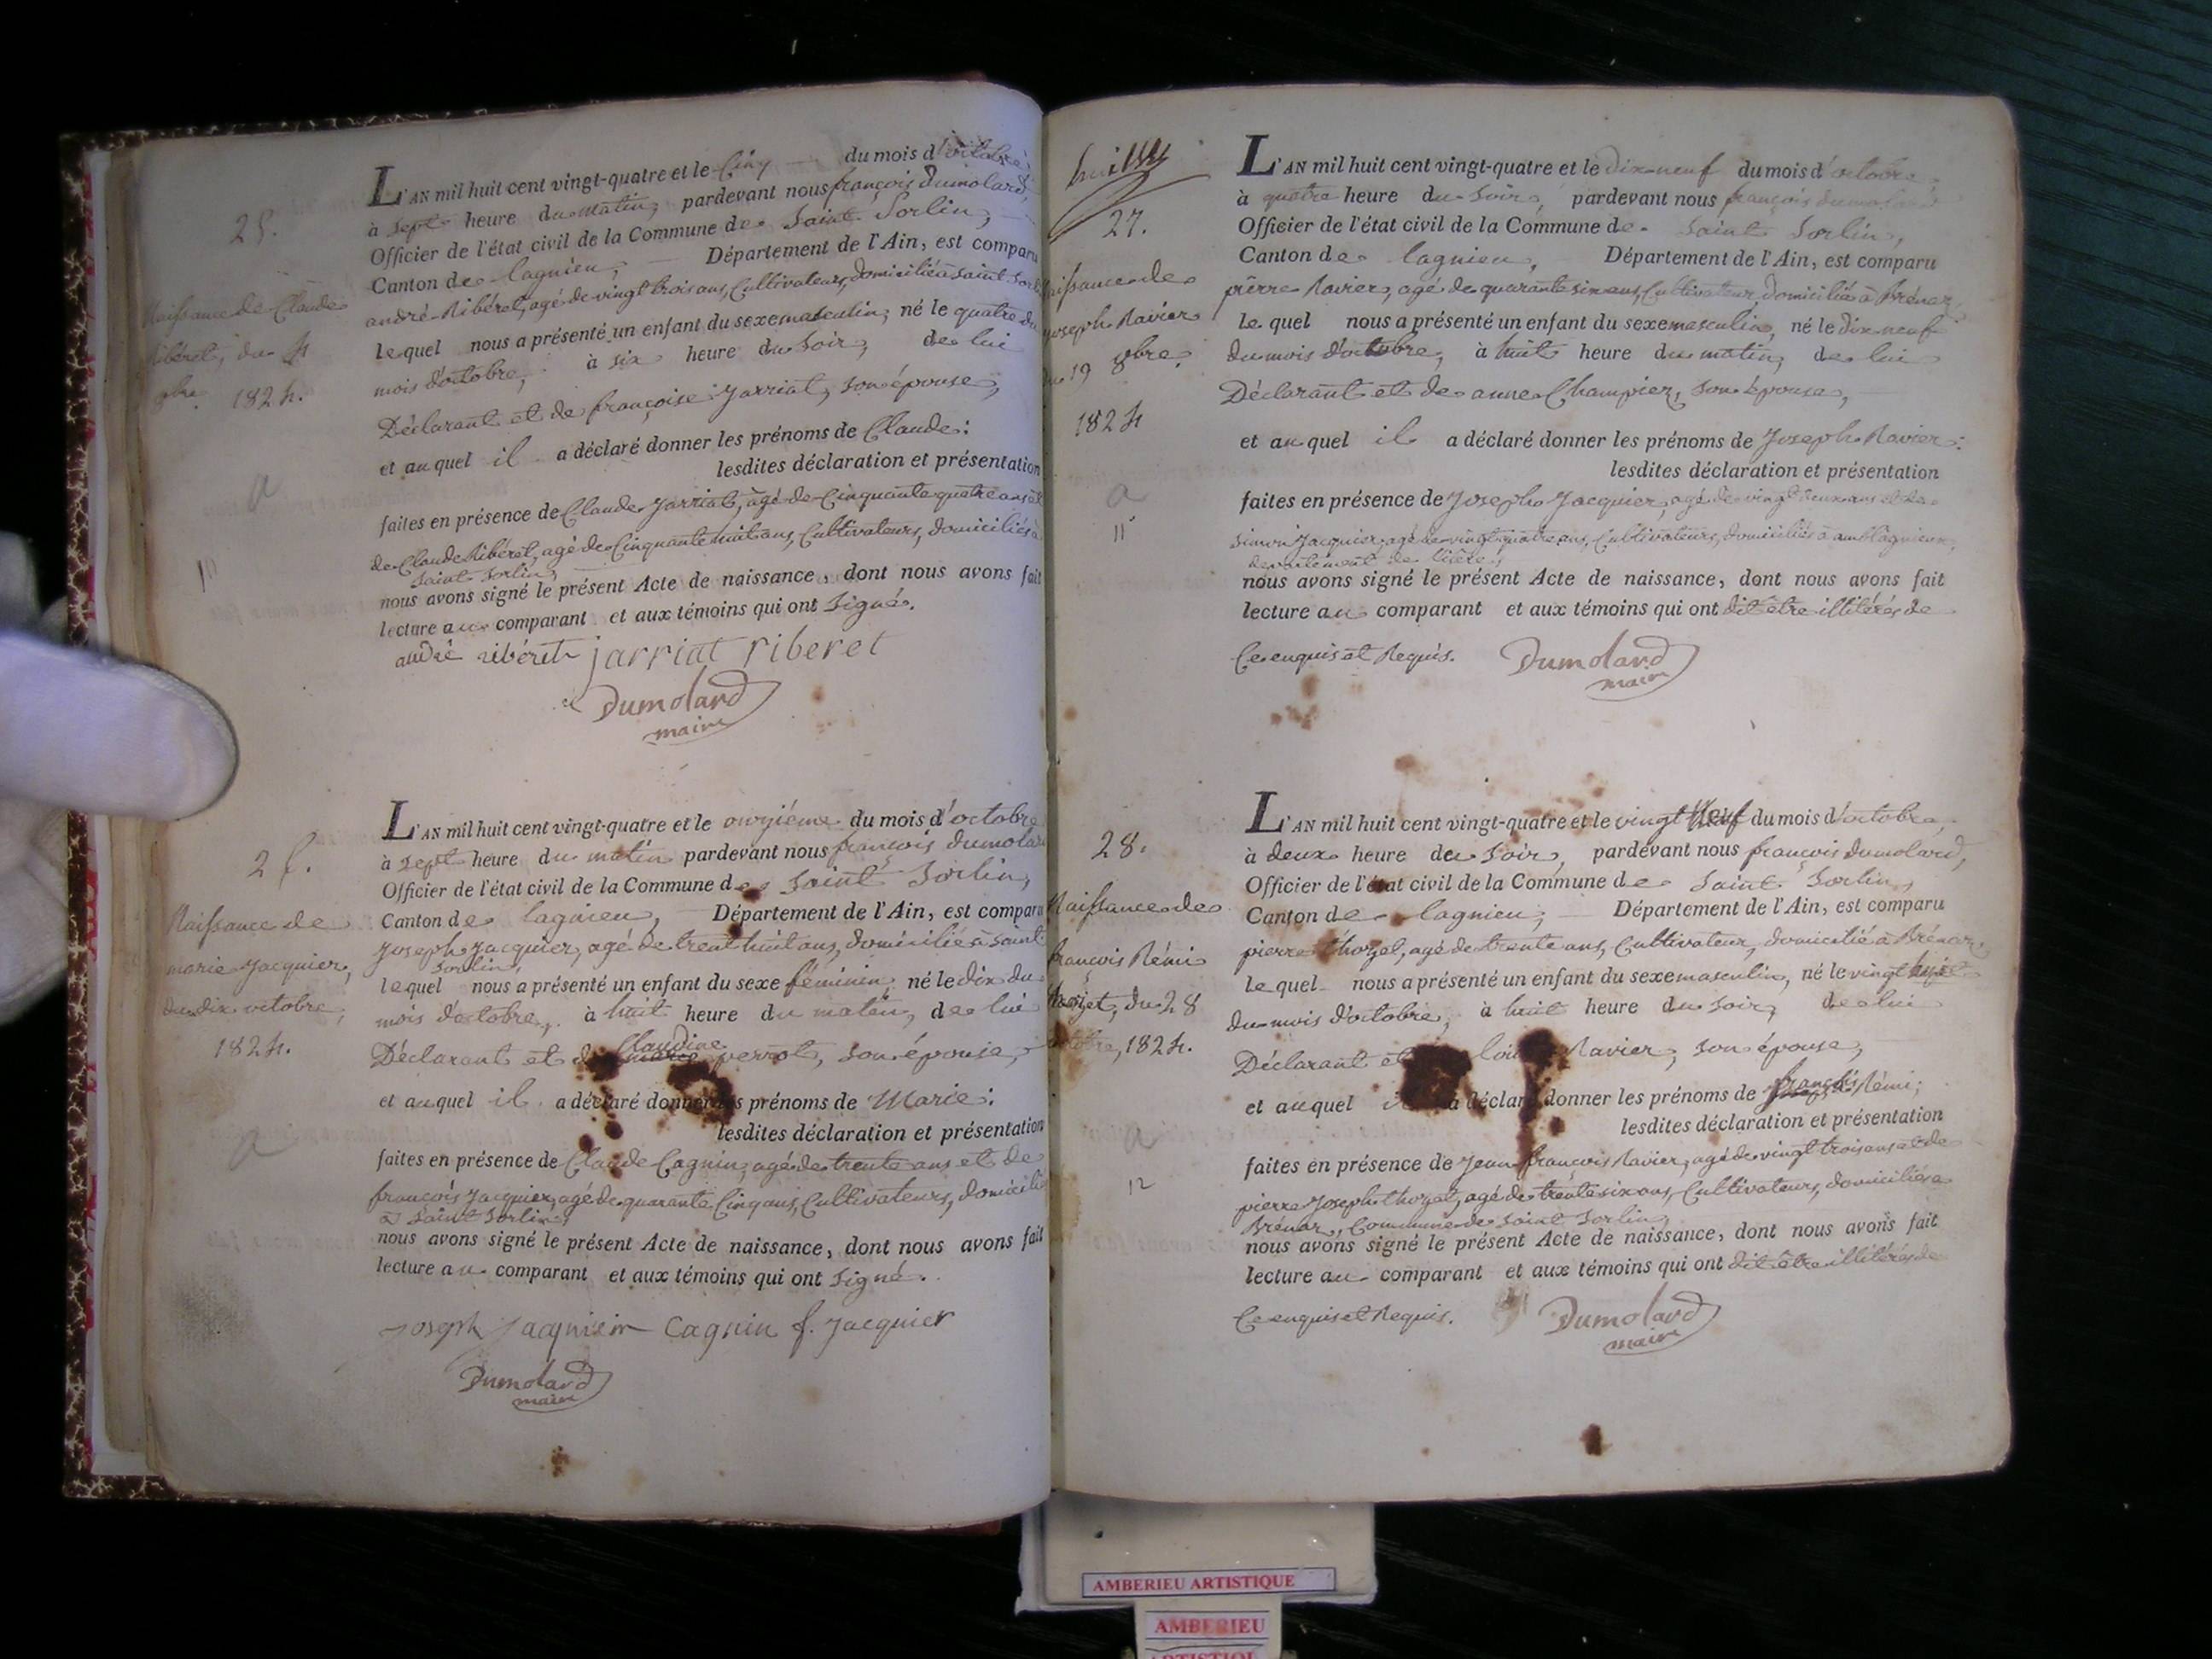 25.
Naissance de Claude
Ribéret, du 4
8bre 1824.
a
L'AN mil huit cent vingt-quatre et le Cinq du mois d'octobre
à sept heure du matin, pardevant nous françois dumolard,
Officier de l'état civil de la Commune de Saint Sorlin,
Canton de lagnieu, Département de l'Ain, est comparu
andré Ribéret, agé de vingt trois ans, Cultivateur, domicilié à saint Sorl
lequel nous a présenté un enfant du sexe masculin, né le quatre du
mois d'octobre, à six heure du Soir, de lui
Déclarant et de françoise Jarriat, son épouse,
et auquel il a déclaré donner les prénoms de Claude:
lesdites déclaration et présentation
faites en présence de Claude Jarriat, agé de Cinquante quatre ans et
de Claude Ribéret, agé de Cinquante huit ans, Cultivateurs, domiciliés à
Saint Sorlin,
nous avons signé le présent Acte de naissance, dont nous avons fait
lecture au comparant et aux témoins qui ont Signé.
andré ribéret jarriat riberet
Dumolard
maire
Naissance de
marie Jacquier,
du dix octobre,
1824.
a
L'AN mil huit cent vingt-quatre et le onzième du mois d'octobre
à sept heure du matin pardevant nous françois dumolard
Officier de l'état civil de la Commune de Saint Sorlin,
Canton de lagnieu, Département de l'Ain, est comparu
Joseph Jacquier, agé de trent huit ans, domicilié à saint
Sorlin,
lequel nous a présenté un enfant du sexe féminin, né le dix du
mois d'octobre, à huit heure du matin, de lui
Claudine
Déclarant et de marie perrot, son épouse,
et auquel il a déclaré donner les prénoms de Marie:
lesdites déclaration et présentation
faites en présence de Claude Cagnin, agé de trente ans et de
françois Jacquier, agé de quarante Cinq ans, Cultivateurs, domicilié
à Saint Sorlin,
nous avons signé le présent Acte de naissance, dont nous avons fait
lecture au comparant et aux témoins qui ont Signé.
Joseph Jacquier Cagnin f. Jacquier
Dumolard
maire
27.
Naissance de
Joseph Ravier
du 19 8bre
1824
a
11
L'AN mil huit cent vingt-quatre et le dix neuf du mois d'octobre
à quatre heure du Soir, pardevant nous françois dumolard
Officier de l'état civil de la Commune de Saint Sorlin,
Canton de lagnieu, Département de l'Ain, est comparu
pierre Ravier, agé de quarante six ans, Cultivateur, domicilié à Brénaz,
lequel nous a présenté un enfant du sexe masculin, né le dix neuf
du mois d'octobre, à huit heure du matin, de lui
Déclarant et de anne Champier, son épouse,
et auquel il a déclaré donner les prénoms de Joseph Ravier:
lesdites déclaration et présentation
faites en présence de Joseph Jacquier, agé de vingt deux ans et de
simon Jacquier, agé de vingt quatre ans, Cultivateurs, domiciliés à amblagnieu,
département de l'isère,
nous avons signé le présent Acte de naissance, dont nous avons fait
lecture au comparant et aux témoins qui ont dit être illitérés de
Ce enquis et Requis. Dumolard
maire
28.
Naissance de
François Rémi
thozet, du 28
octobre, 1824.
a
12
L'AN mil huit cent vingt-quatre et le vingt Neuf du mois d'octobre,
à deux heure du Soir, pardevant nous françois dumolard,
Officier de l'état civil de la Commune de Saint Sorlin,
Canton de lagnieu, Département de l'Ain, est comparu
pierre thozet, agé de trente ans, Cultivateur, domicilié à Brénaz,
lequel nous a présenté un enfant du sexe masculin, né le vingt huit
du mois d'octobre, à huit heure du Soir, de lui
Déclarant et Ravier, son épouse,
et auquel a déclaré donner les prénoms de françois Rémi;
lesdites déclaration et présentation
faites en présence de Jean françois Ravier, agé de vingt trois ans et de
pierre Joseph thozet, agé de trente six ans, Cultivateurs, domiciliés à
Brénaz, Commune de Saint Sorlin,
nous avons signé le présent Acte de naissance, dont nous avons fait
lecture au comparant et aux témoins qui ont dit être illitérés de
Ce enquis et Requis. Dumolard
maire
AMBERIEU ARTISTIQUE
AMBERIEU
ARTISTIQUE